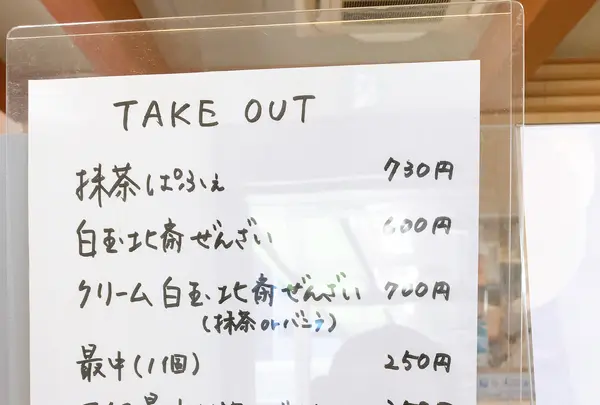 TAKE OUT
抹茶ぱふぇ 730円
白玉北斎ぜんざい 600円
クリーム白玉北斎ぜんざい 700円
(抹茶orバニラ)
最中(1個) 250円